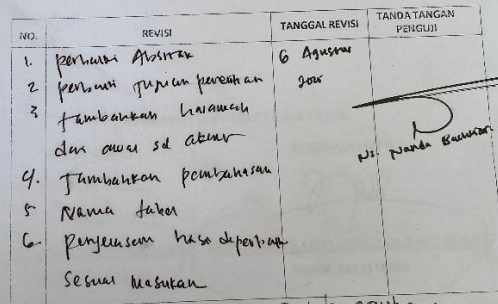 NO. REVISI TANGGAL REVISI TANDA TANGAN PENGUJI
1. perbaiki Abstrak 6 Agustus
2 perbaiki tujuan penelitian 2025
3 tambahkan halaman
dari awal sd akhir
Ns. Nanda
4. Tambahkan pembahasan
5 Nama tabel
6. penjelasan hasil diperbaiki
sesuai masukan